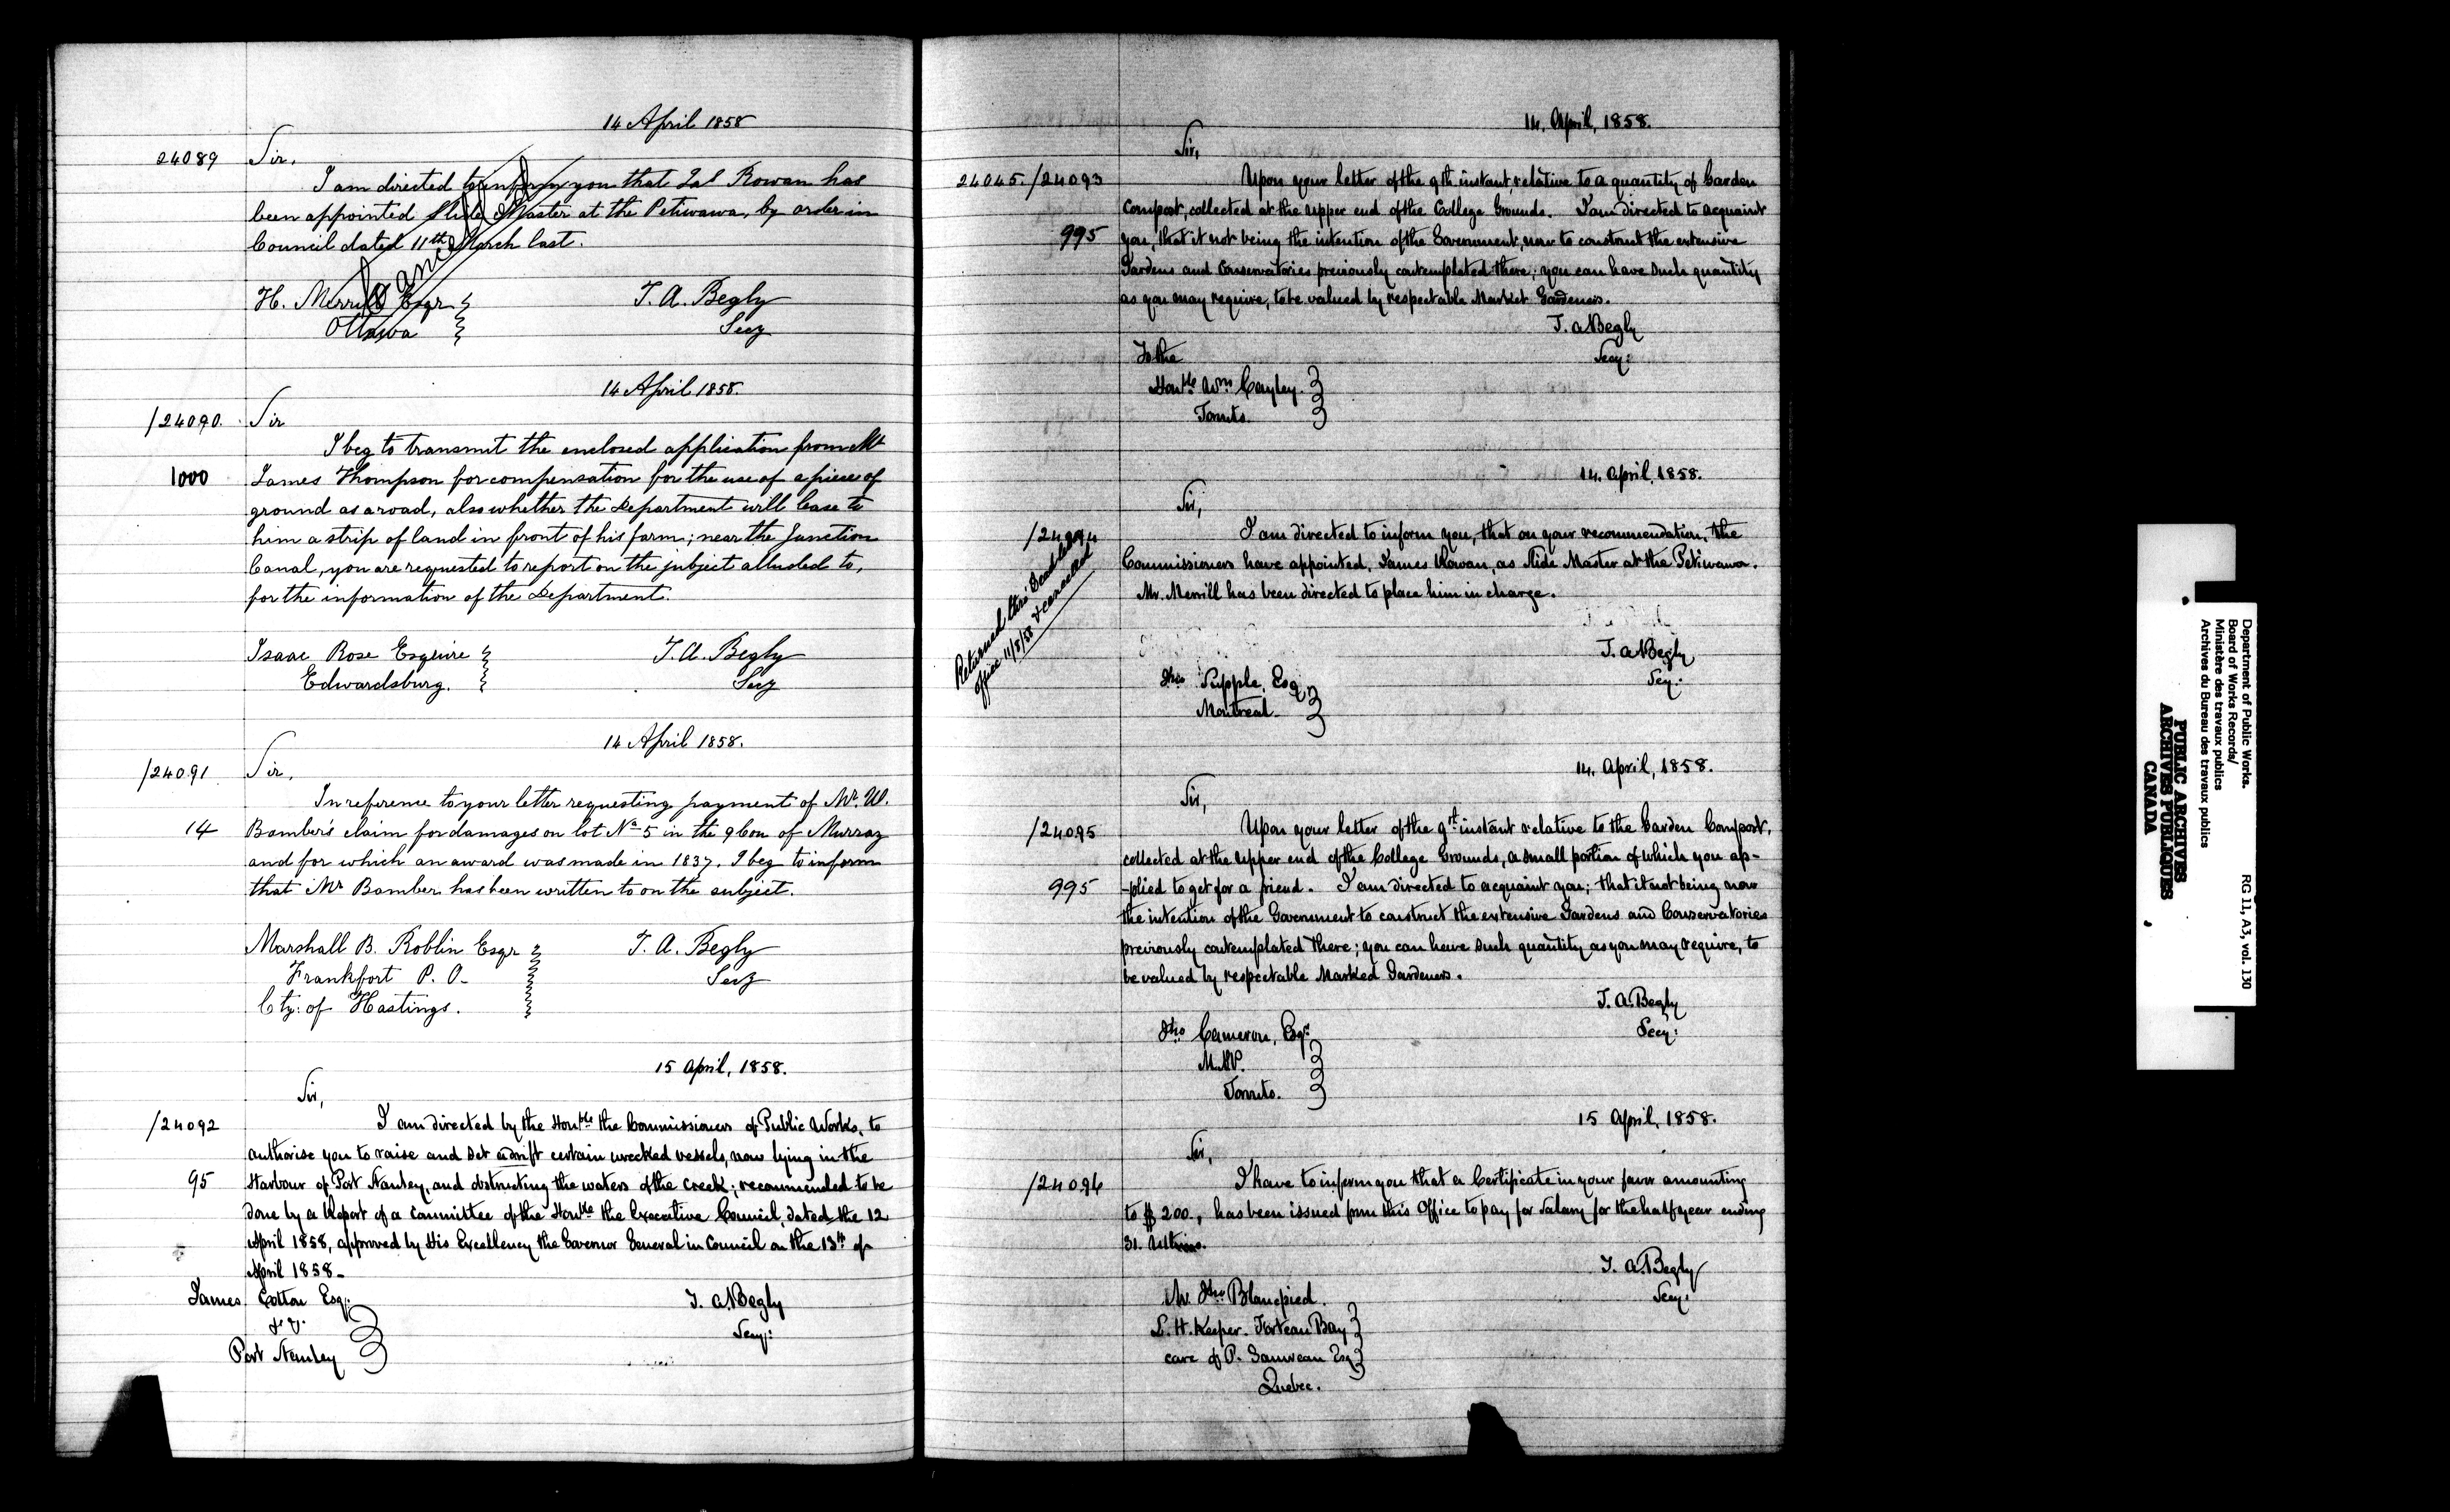 14 April 1858
24089 Sir,
I am directed to inform you that Jas Rowan has
been appointed Slide Master at the Petewawa, by order in
Council dated 11th March last.
Cancelled
H. Merrill Esqr T. A. Begly
Ottawa Secy
14 April 1858.
/24090. Sir
I beg to transmit the enclosed application from Mr
1000 James Thompson for compensation for the use of a piece of
ground as a road, also whether the Department will lease to
him a strip of land in front of his farm; near the Junction
Canal, you are requested to report on the subject alluded to,
for the information of the Department.
Isaac Rose Esquire T. A. Begly
Edwardsburg. Secy
14 April 1858.
/24091 Sir,
In reference to your letter requesting payment of Mr. W.
14 Bamber's claim for damages on lot No 5 in the 9 Con of Murray
and for which an award was made in 1837. I beg to inform
that Mr Bamber has been written to on the subject.
Marshall B. Roblin Esqr T. A. Begly
Frankfort P. O. Secy
Cty: of Hastings.
15 April, 1858.
Sir,
/24092 I am directed by the Honble the Commissioners of Public Works, to
authorise you to raise and set adrift certain wrecked vessels, now lying in the
95 Harbour of Port Stanley, and obstructing the waters of the Creek; recommended to be
done by a Report of a Committee of the Honble the Executive Council, dated the 12
April 1858, approved by His Excellency the Governor General in Council on the 13th of
April 1858_
James Cotton Esq: T. A. Begly
Secy:
Port Stanley
14. April, 1858.
Sir,
24045/24093 Upon your letter of the 9th instant, relative to a quantity of Garden
Compost, collected at the upper end of the College Grounds. I am directed to acquaint
995 you, that it not being the intention of the Government, now to construct the extensive
Gardens and Conservatories previously contemplated there; you can have such quantity
as you may require, to be valued by respectable Market Gardeners.
T. A Begly
To the Secy:
Honble Wm Cayley.
Toronto.
14. April, 1858.
Sir,
/24094 I am directed to inform you, that on your recommendation, the
Commissioners have appointed, James Rowan, as Slide Master at the Petiwawa.
Mr. Merrill has been directed to place him in charge.
Returned thro' Dead letter
office 11/8/58 & cancelled
T. A Begly
Jno Supple, Esq Secy:
Montreal
14. April, 1858.
Sir,
/24095 Upon your letter of the 9th instant relative to the Garden Compost,
collected at the upper end of the College Grounds, a small portion of which you ap-
995 -plied to get for a friend. I am directed to acquaint you; that it not being now
the intention of the Government to construct the extensive Gardens and Conservatories
previously contemplated there; you can have such quantity as you may require, to
be valued by respectable Marked Gardeners.
T. A. Begly
Jno Cameron, Esqr: Secy:
M.P.P.
Toronto.
15 April, 1858.
Sir,
/24096 I have to inform you that a Certificate in your favor amounting
to $ 200., has been issued from this Office to pay for Salary for the half year ending
31. Ultimo.
T. A. Begly
Mr. Jno Blampied. Secy:
L. H. Keeper. Forteau Bay
care of P. Gauvreau Esq
Quebec.
Department of Public Works.
Board of Works Records/
Ministère des travaux publics
Archives du Bureau des travaux publics
RG 11, A3, vol. 130
PUBLIC ARCHIVES
ARCHIVES PUBLIQUES
CANADA